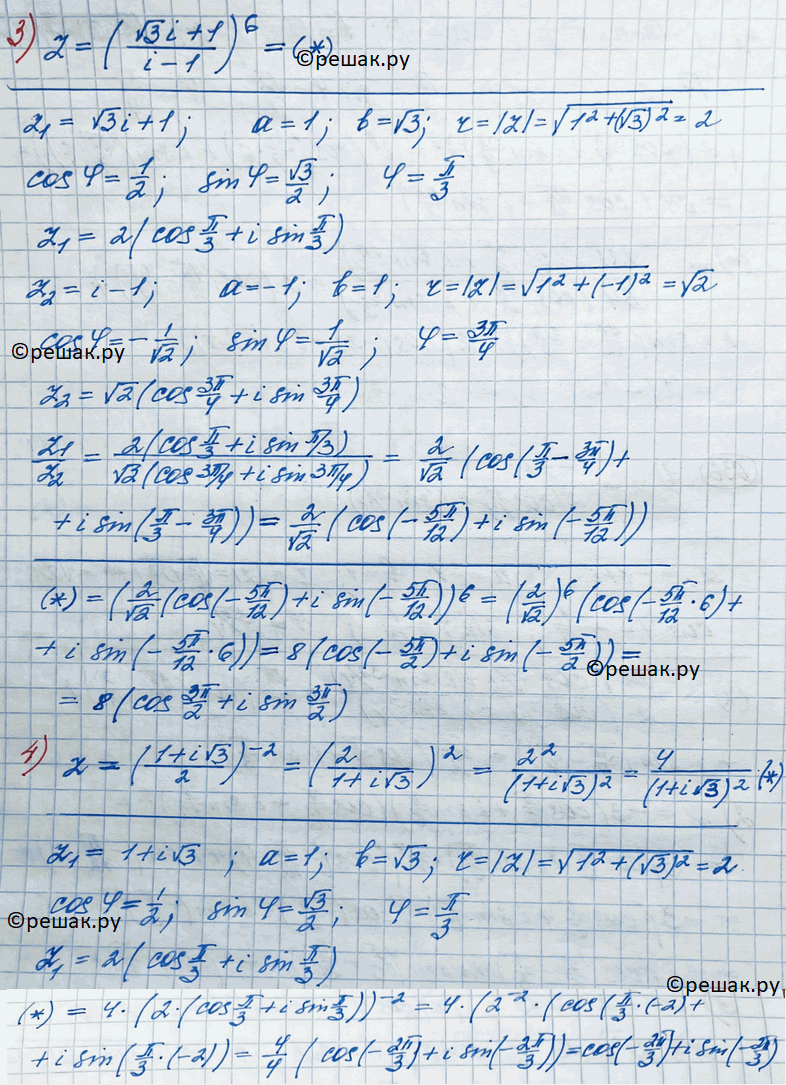 3) z = ( (√3i+1)/(i−1) )^6 = (*)
©решак.ру
z₁ = √3i+1; a=1; b=√3; r=|z|=√(1²+(√3)²)=2
cos φ=1/2; sin φ=√3/2; φ=π/3
z₁ = 2(cos π/3 + i sin π/3)
z₂ = i−1; a=−1; b=1; r=|z|=√(1²+(−1)²)=√2
cos φ=−1/√2; sin φ=1/√2; φ=3π/4
©решак.ру
z₂=√2(cos 3π/4 + i sin 3π/4)
z₁/z₂ = 2(cos π/3 + i sin π/3)/√2(cos 3π/4 + i sin 3π/4) = 2/√2 (cos(π/3 − 3π/4)+
+i sin(π/3 − 3π/4))= 2/√2 (cos(−5π/12)+i sin(−5π/12))
(*) = (2/√2 (cos(−5π/12)+i sin(−5π/12))^6 = (2/√2)^6 (cos(−5π/12·6)+
+i sin(−5π/12·6))=8(cos(−5π/2)+i sin(−5π/2))=
©решак.ру
= 8(cos 3π/2 + i sin 3π/2)
4) z = ((1+i√3)/2)^−2 = (2/(1+i√3))^2 = 2²/(1+i√3)² = 4/(1+i√3)² (*)
z₁ = 1+i√3; a=1; b=√3; r=|z|=√(1²+(√3)²)=2
cos φ=1/2; sin φ=√3/2; φ=π/3
©решак.ру
z₁ = 2(cos π/3 + i sin π/3)
©решак.ру
(*) = 4·(2·(cos π/3 + i sin π/3))^−2 = 4·(2^−2·(cos(π/3·(−2)+
+i sin(π/3·(−2))= 4/4 (cos(−2π/3)+i sin(−2π/3))=cos(−2π/3)+i sin(−2π/3)